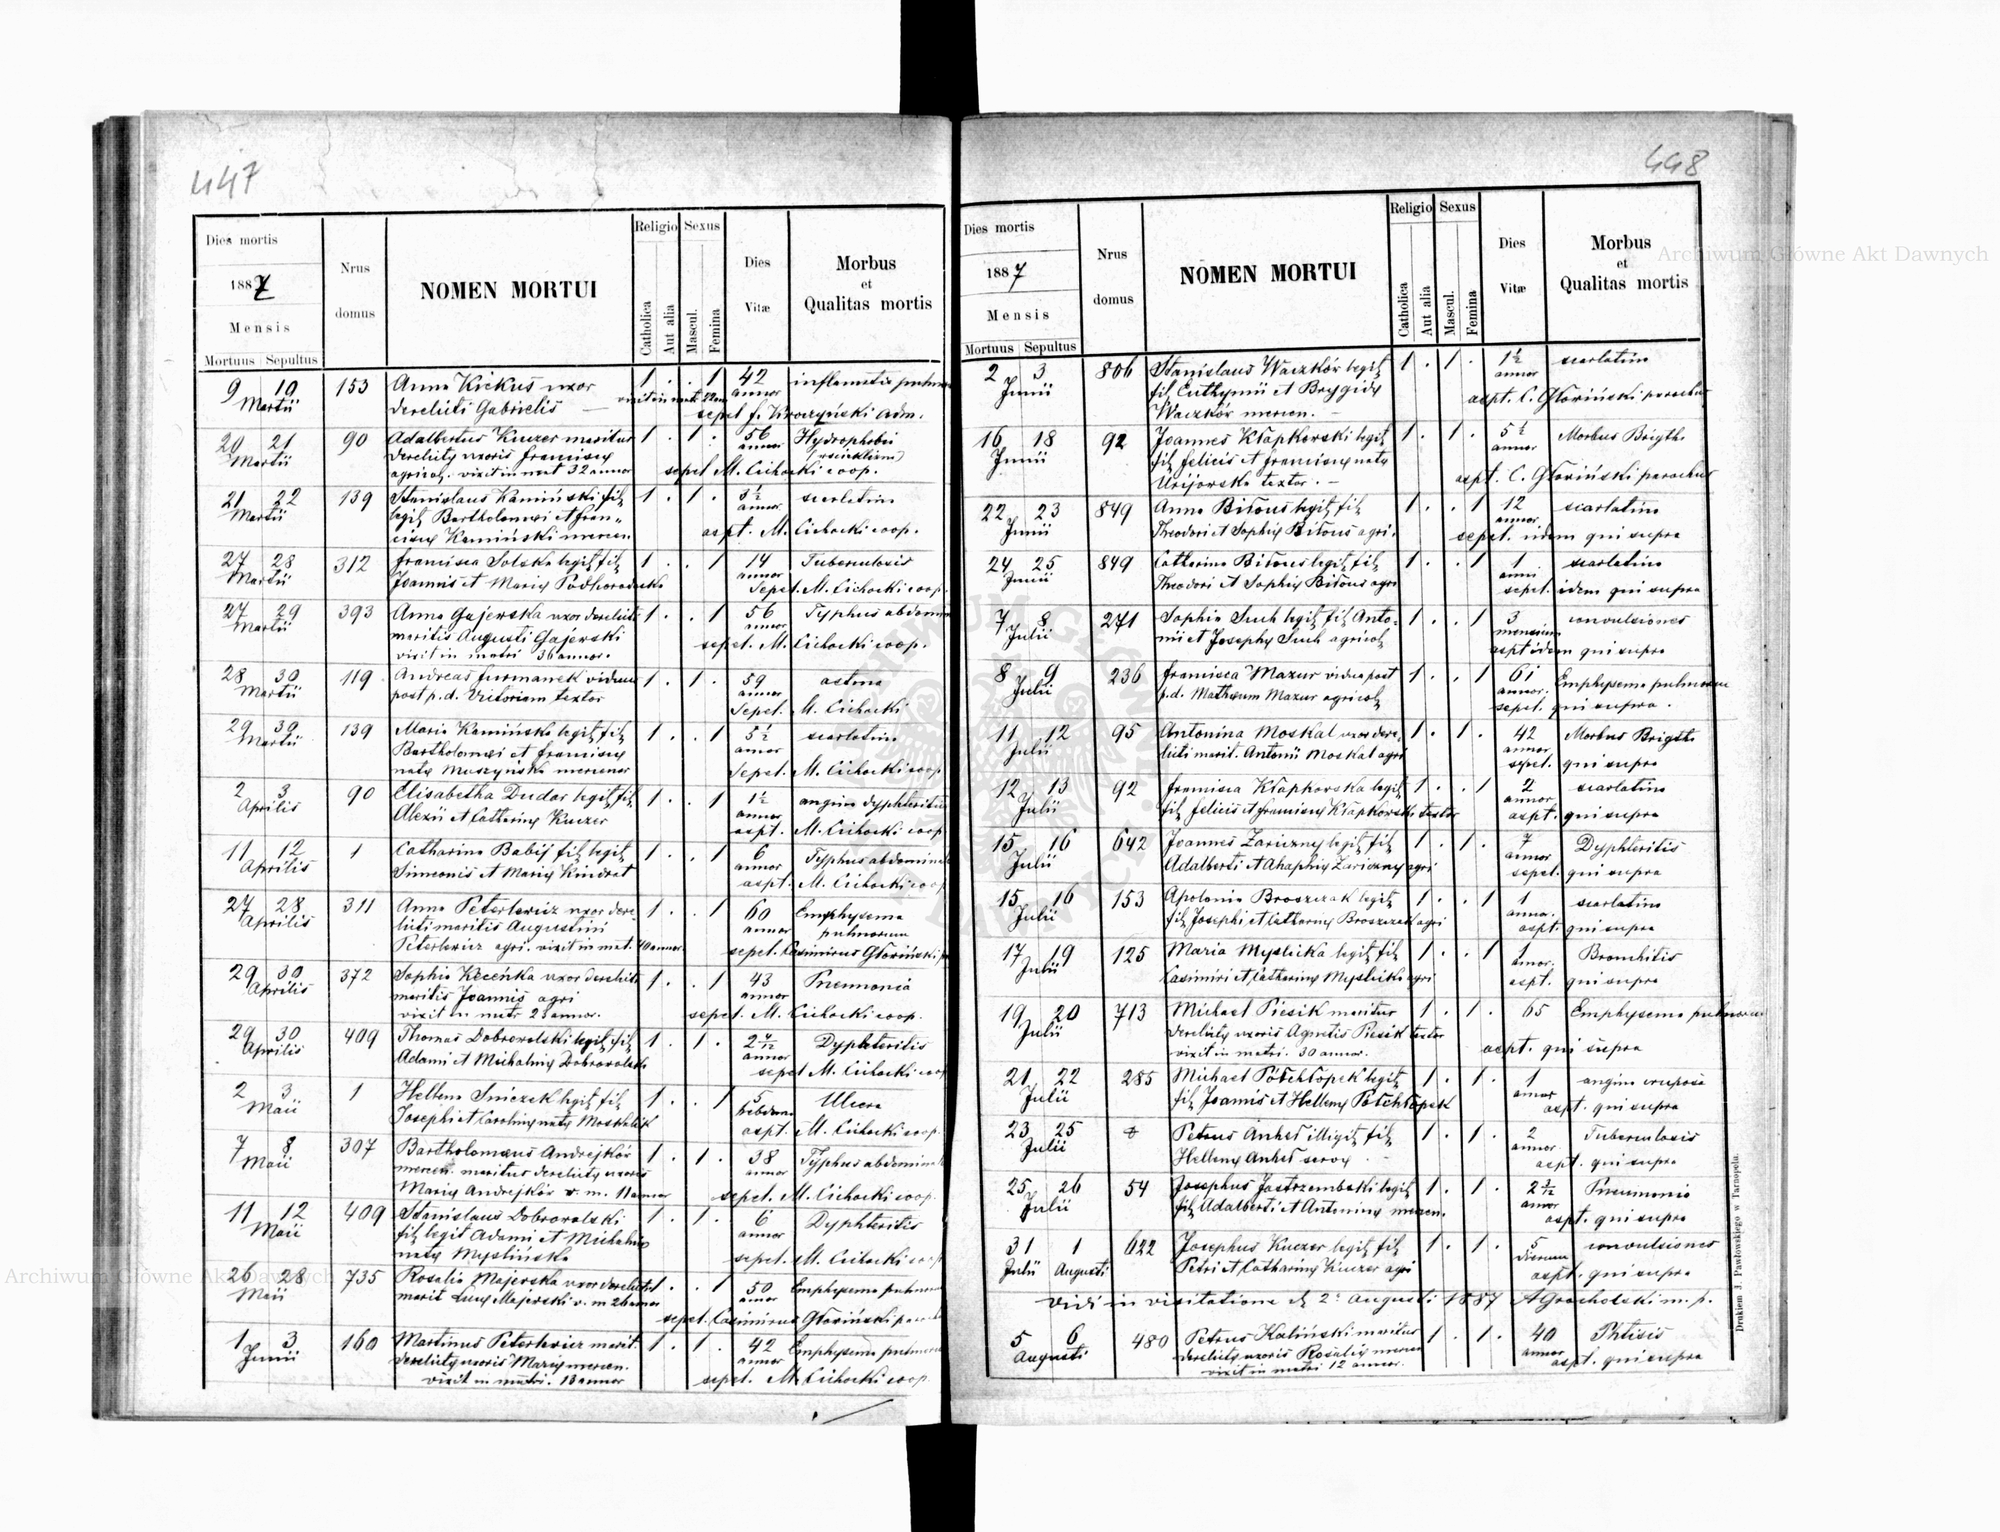 447
Dies mortis
1887
Mensis
Mortuus Sepultus
Nrus domus
NOMEN MORTUI
Religio
Catholica
Aut alia
Sexus
Mascul.
Femina
Dies Vitæ
Morbus et Qualitas mortis
9 10 153 Anna Kickus uxor 1 . . 1 42
Martii derelicti Gabrielis annor
sepel f. Kroczyński adm.
20 21 90 Adalbertus Kuczer maritus 1 . 1 . 56 Hydrophobii
Martii derelictę uxoris Franciscę annor
agricol. vixit in mat 32 annor sepel M. Cichocki coop.
21 22 139 Stanislaus Kamiński fil. 1 . 1 . 3½ scarlatina
Martii legit. Bartholomei et Fran- annor
ciscę Kamiński mercen. aspt. M. Cichocki coop.
27 28 312 Francisca Solska legit. fil. 1 . . 1 14 Tuberculosis
Martii Joannis et Marię Podhorodecka annor Sepel. M. Cichocki coop.
27 29 393 Anna Gajewska uxor derelicti 1 . . 1 56 Typhus abdomin
Martii maritis Augusti Gajewski annor
vixit in matri 36 annor. sepel. M. Cichocki coop.
28 30 119 Andreas Furmanek viduus 1 . 1 . 59 astma
Martii post p. d. Victoriam textor annor Sepel. M. Cichocki
29 30 139 Maria Kamińska legit. fil. 1 . . 1 5½ scarlatina
Martii Bartholomei et Franciscę annor
natę Muszyńska mercenar Sepel. M. Cichocki coop
2 3 90 Elisabetha Dudar legit. fil. 1 . . 1 1½ angina dyphteritica
Aprilis Alexii et Catharinę Kuczer annor aspt. M. Cichocki coop
11 12 1 Catharina Babij fil. legit. 1 . . 1 6 Typhus abdominal
Aprilis Simeonis et Marię Kindrat annor aspt. M. Cichocki coop
27 28 311 Anna Peterkewicz uxor dere- 1 . . 1 60 Emphysema
Aprilis licti maritis Augustini annor pulmorum
agri. vixit in mat. 40 annor. sepel. Casimirus Głowiński
29 30 372 Sophia uxor derelicti 1 . . 1 43 Pneumonia
Aprilis maritis Joannis agri annor
vixit in matr annor. sepel. M. Cichocki coop.
29 30 409 Thomas Dobrowolski legit. fil. 1 . 1 . Dyphteritis
Aprilis Adami et Michalinę Dobrowolski annor sepel M. Cichocki coop
2 3 1 Hellena Sniczek legit. fil. 1 . . 1 5 Ulcera
Maii Josephi et Carolinę natę hebdom aspt. M. Cichocki coop.
7 8 307 Bartholomeus Andrejkór 1 . 1 . 38 Typhus abdominal
Maii mercen. maritus derelictę uxoris annor
Marię Andrejkór v. m. 11 annor sepel. M. Cichocki coop.
11 12 409 Stanislaus Dobrowolski 1 . 1 . 6 Dyphteritis
Maii fil. legit Adami et Michalinę annor
natę Myslińska sepel. M. Cichocki coop
26 28 735 Rosalia Majerska uxor derelicti 1 . . 1 50 Emphysema pulmon
Maii marit Lucę Majerski v. m 26 annor annor
sepel. Casimirus Głowiński
1 3 160 Martinus Peterkewicz marit. 1 . 1 . 42 Emphysema pulmon
Junii derelictę uxoris Marię mercen. annor
vixit in matri. 13 annor sepel. M. Cichocki coop.
448
Dies mortis
1887
Mensis
Mortuus Sepultus
Nrus domus
NOMEN MORTUI
Religio
Catholica
Aut alia
Sexus
Mascul.
Femina
Dies Vitæ
Morbus et Qualitas mortis
2 3 806 Stanislaus Waczkór legit. 1 . 1 . 1½ scarlatina
Junii fil. Euthymii et Brygidę annor aspt. C. Głowiński parochus
Waczkór mercen.
16 18 92 Joannes Kłapkowski legit. 1 . 1 . 5½ Morbus Brigth.
Junii fil. Felicis et Franciscę natę annor
textor. aspt. C. Głowiński parochus
22 23 849 Anna Bitous legit. fil. 1 . . 1 12 scarlatina
Junii Theodori et Sophię Bitous agri. annor sepel. idem qui supra
24 25 849 Catharina Bitous legit. fil. 1 . . 1 1 scarlatina
Junii Theodori et Sophię Bitous agri anni sepel. idem qui supra
7 8 271 Sophia Such legit. fil. Anto- 1 . . 1 3 convulsiones
Julii nii et Josephę Such agricol. mensium aspt idem qui supra
8 9 236 Francisca Mazur vidua post 1 . . 1 61 Emphysema pulmorum
Julii p. d. Matheum Mazur agricol. annor. sepel. qui supra.
11 12 95 Antonina Moskal uxor dere- 1 . 1 . 42 Morbus Brigth
Julii licti marit. Antonii Moskal agri annor sepel. qui supra
12 13 92 Francisca Kłapkowska legit. 1 . . 1 2 scarlatina
Julii fil. Felicis et Franciscę Kłapkowski textor annor aspt. qui supra
15 16 642 Joannes Zariczny legit. fil. 1 . 1 . 7 Dyphteritis
Julii Adalberti et Ahaphię Zariczny agri annor sepel. qui supra
15 16 153 Apolonia Broszczak legit. 1 . . 1 1 scarlatina
Julii fil. Josephi et Catharinę Broszczak agri annor. aspt. qui supra
17 19 125 Maria Myslicka legit. fil. 1 . . 1 1 Bronchitis
Julii Casimiri et Catharinę Myslicka agri annor. aspt. qui supra
19 20 713 Michael Piesik maritus 1 . 1 . 65 Emphysema pulmorum
Julii derelictę uxoris Agnetis Piesik textor
vixit in matri. 30 annor. aspt. qui supra
21 22 285 Michael Potchłopek legit. 1 . 1 . 1 angina cruposa
Julii fil. Joannis et Hellenę Potchłopek annor aspt. qui supra
23 25 Petrus Anheł illigit. fil. 1 . 1 . 2 Tuberculosis
Julii Hellenę Anheł annor. aspt. qui supra
25 26 54 Josephus Jastrzembski legit. 1 . 1 . 2 3/12 Pneumonia
Julii fil. Adalberti et Antoninę mercen. annor aspt. qui supra
31 1 622 Josephus Kuczer legit. fil. 1 . 1 . 5 convulsiones
Julii Augusti Petri et Catharinę Kuczer agri dierum aspt. qui supra
Vidi in visitatione d. 2. Augusti 1887 AGrocholski m. p.
5 6 480 Petrus Kaliński maritus 1 . 1 . 40 Phtisis
Augusti derelictę uxoris Rosalię mercen annor aspt. qui supra
vixit in matri 12 annor.
Drukiem J. Pawłowskiego w Tarnopolu.
Archiwum Główne Akt Dawnych
Archiwum Główne Akt Dawnych